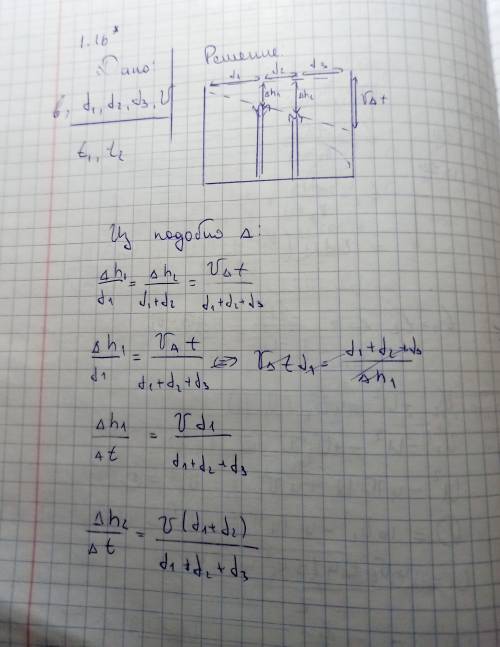 1.16*
Дано:
b, d₁, d₂, d₃, v
t₁, t₂
Решение
d₁ d₂ d₃
Δh₁ Δh₂ vΔt
Из подобие Δ:
Δh₁/d₁ = Δh₂/(d₁+d₂) = vΔt/(d₁+d₂+d₃)
Δh₁/d₁ = vΔt/(d₁+d₂+d₃) <=> vΔt d₁ = (d₁+d₂+d₃)/Δh₁
Δh₁/Δt = v d₁/(d₁+d₂+d₃)
Δh₂/Δt = v(d₁+d₂)/(d₁+d₂+d₃)